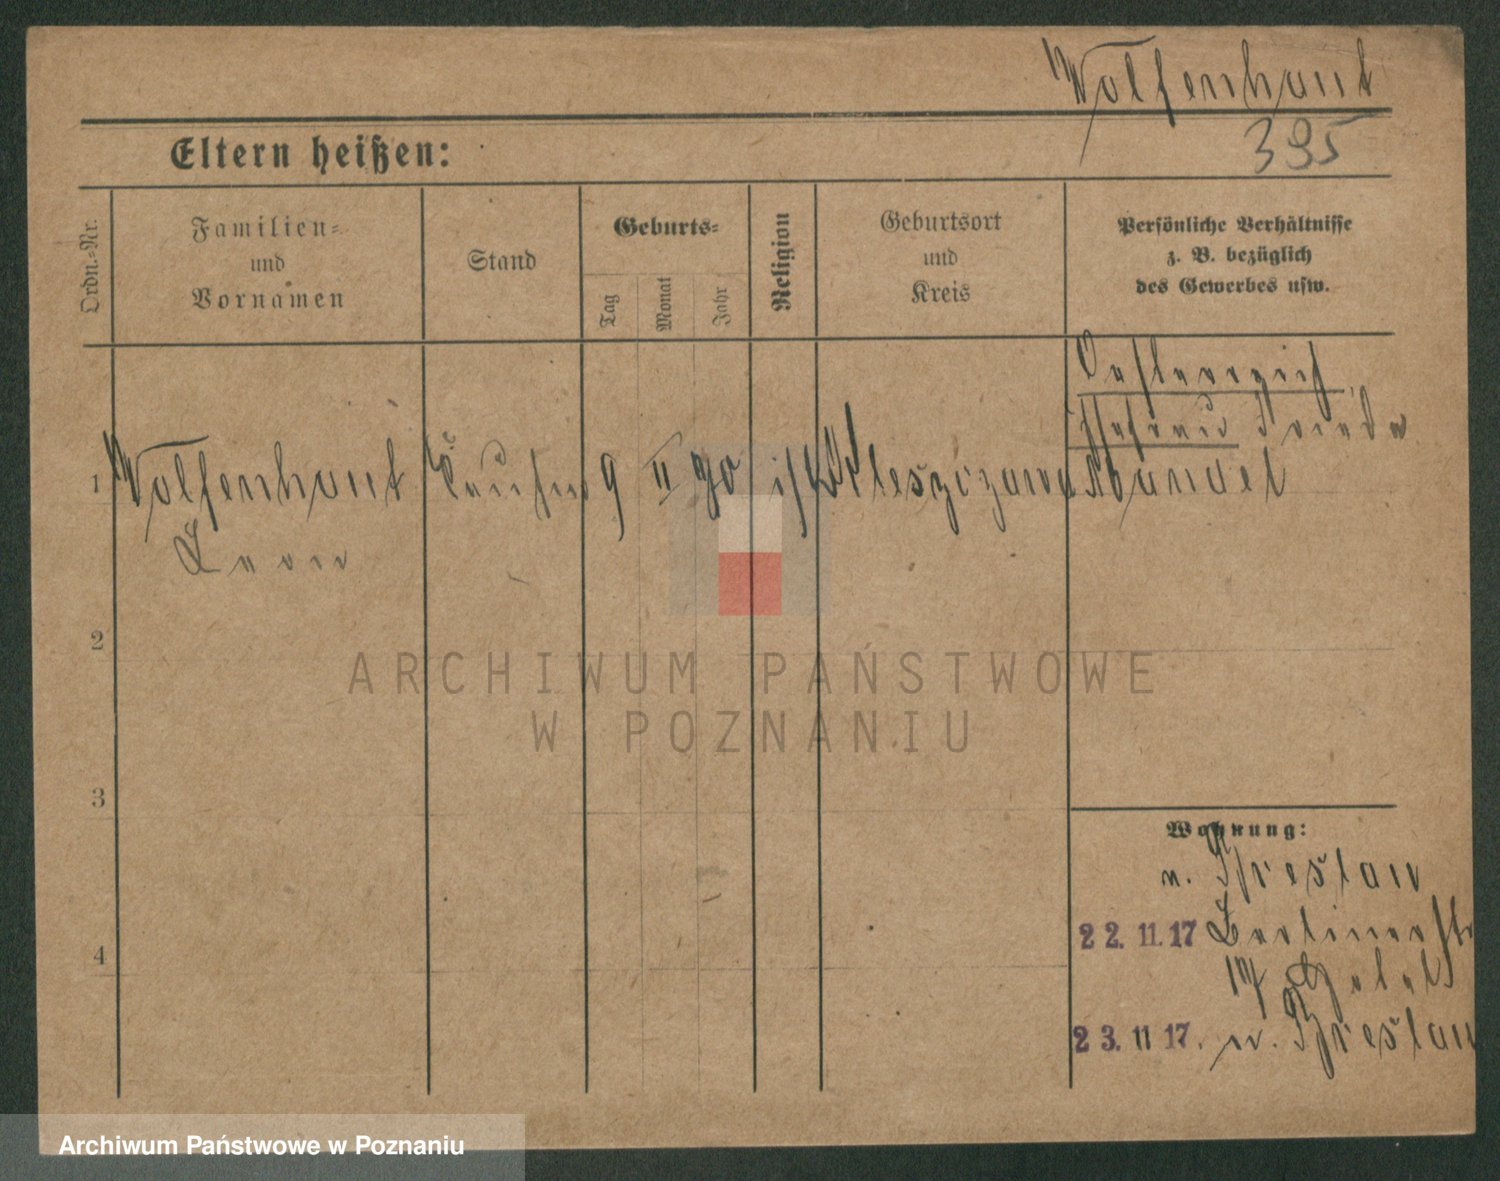 Wolfenhaut
395
Eltern heißen:
Ordn.-Nr.
Familien-
und
Vornamen
Stand
Geburts-
Tag
Monat
Jahr
Religion
Geburtsort
und
Kreis
Persönliche Verhältnisse
z. B. bezüglich
des Gewerbes usw.
Oesterreich
1 Wolfenhaut Kaufm 9 II 90
Leon
2
3
4
Wohnung:
n. Breslau
22. 11. 17 Berlinerstr
Hotel
23. 11 17. n. Breslau
ARCHIWUM PAŃSTWOWE
W POZNANIU
Archiwum Państwowe w Poznaniu